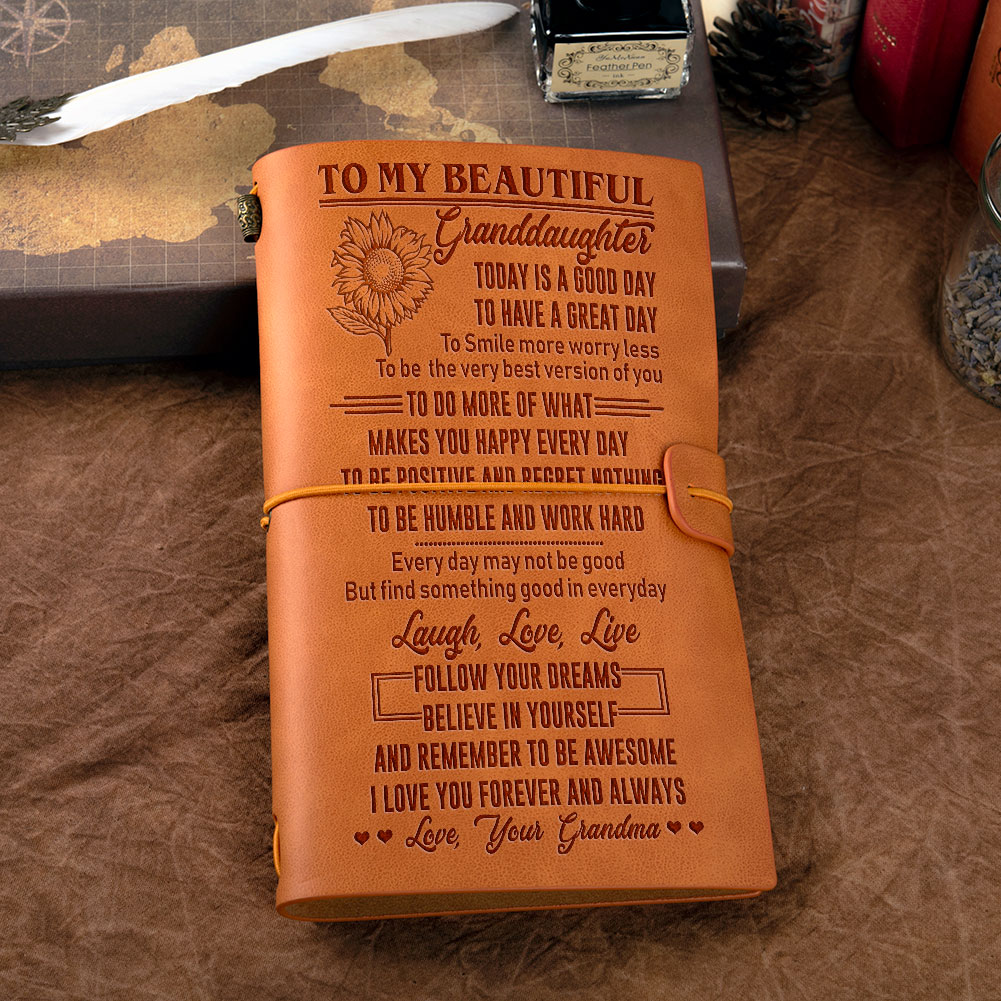 Feather Pen
ink
TO MY BEAUTIFUL
Granddaughter
TODAY IS A GOOD DAY
TO HAVE A GREAT DAY
To Smile more worry less
To be the very best version of you
TO DO MORE OF WHAT
MAKES YOU HAPPY EVERY DAY
TO BE POSITIVE AND REGRET NOTHING
TO BE HUMBLE AND WORK HARD
Every day may not be good
But find something good in everyday
Laugh, Love, Live
FOLLOW YOUR DREAMS
BELIEVE IN YOURSELF
AND REMEMBER TO BE AWESOME
I LOVE YOU FOREVER AND ALWAYS
Love, Your Grandma